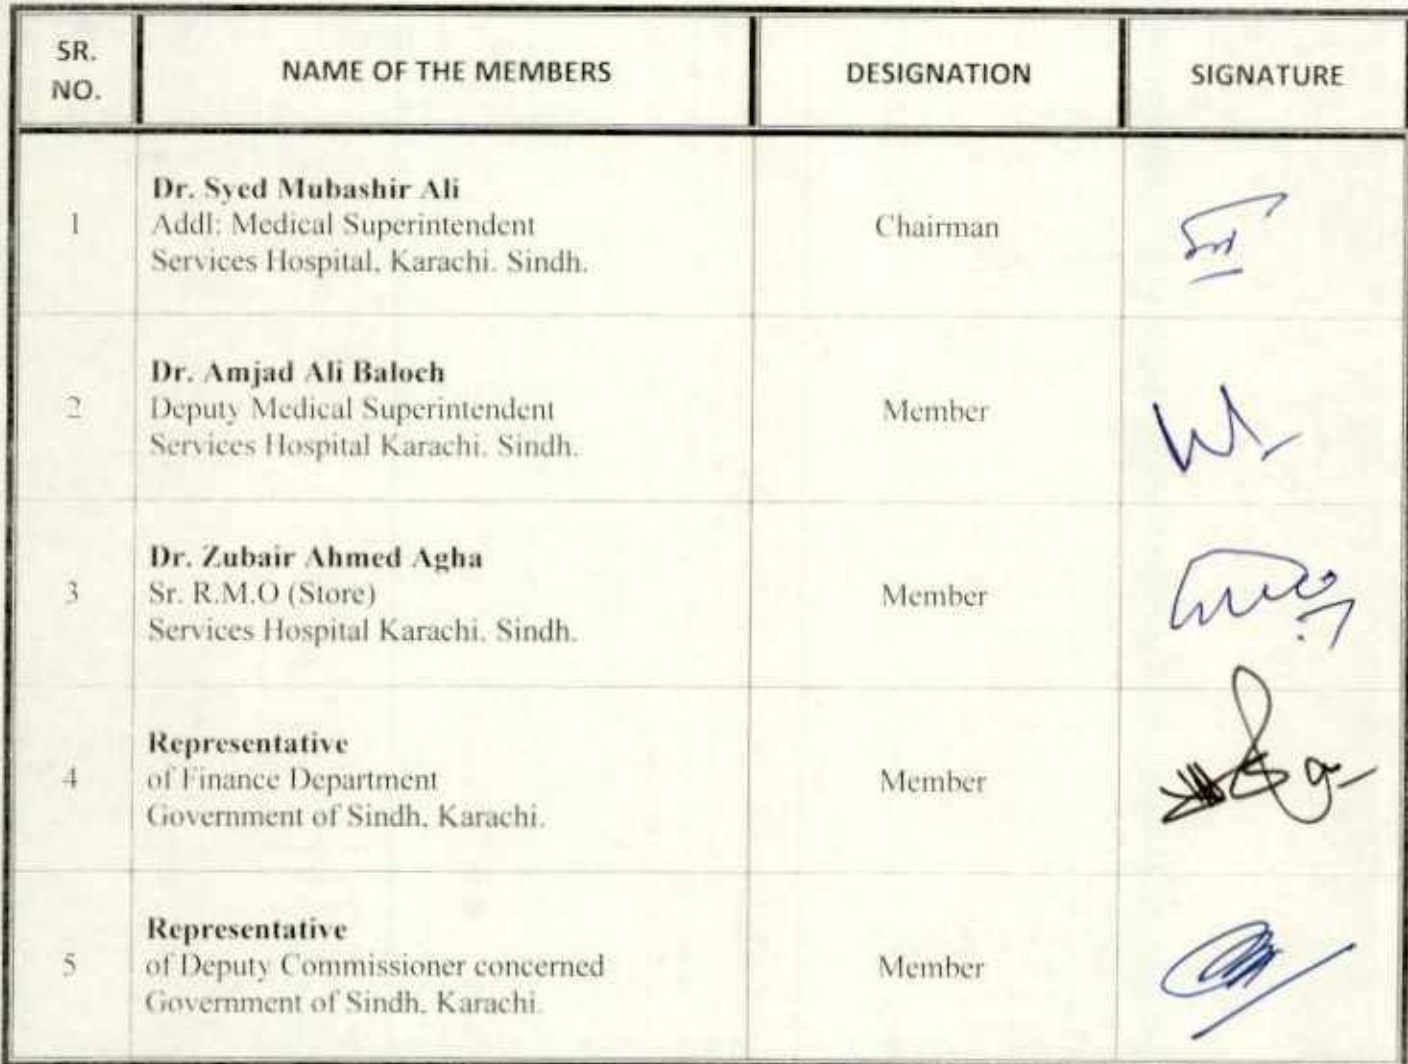 SR.
NO.
NAME OF THE MEMBERS
DESIGNATION
SIGNATURE
1
Dr. Syed Mubashir Ali
Addl: Medical Superintendent
Services Hospital, Karachi. Sindh.
Chairman
2
Dr. Amjad Ali Baloch
Deputy Medical Superintendent
Services Hospital Karachi. Sindh.
Member
3
Dr. Zubair Ahmed Agha
Sr. R.M.O (Store)
Services Hospital Karachi. Sindh.
Member
4
Representative
of Finance Department
Government of Sindh, Karachi.
Member
5
Representative
of Deputy Commissioner concerned
Government of Sindh, Karachi.
Member